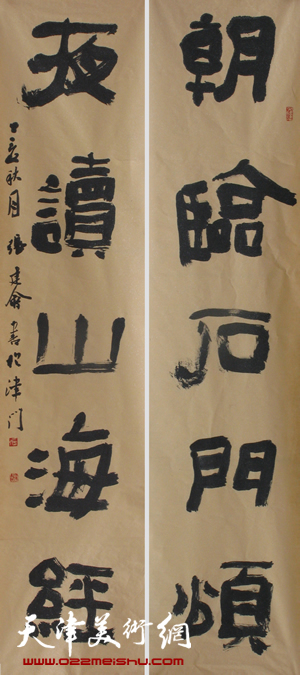 朝臨石門頌
夜讀山海經
丁亥秋月張建會書於津門
天津美術網
www.022meishu.com